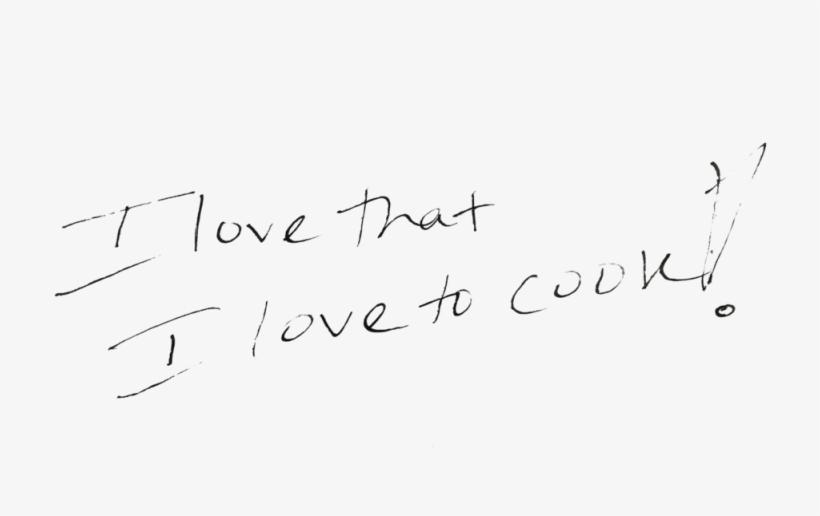 I love that
I love to cook!